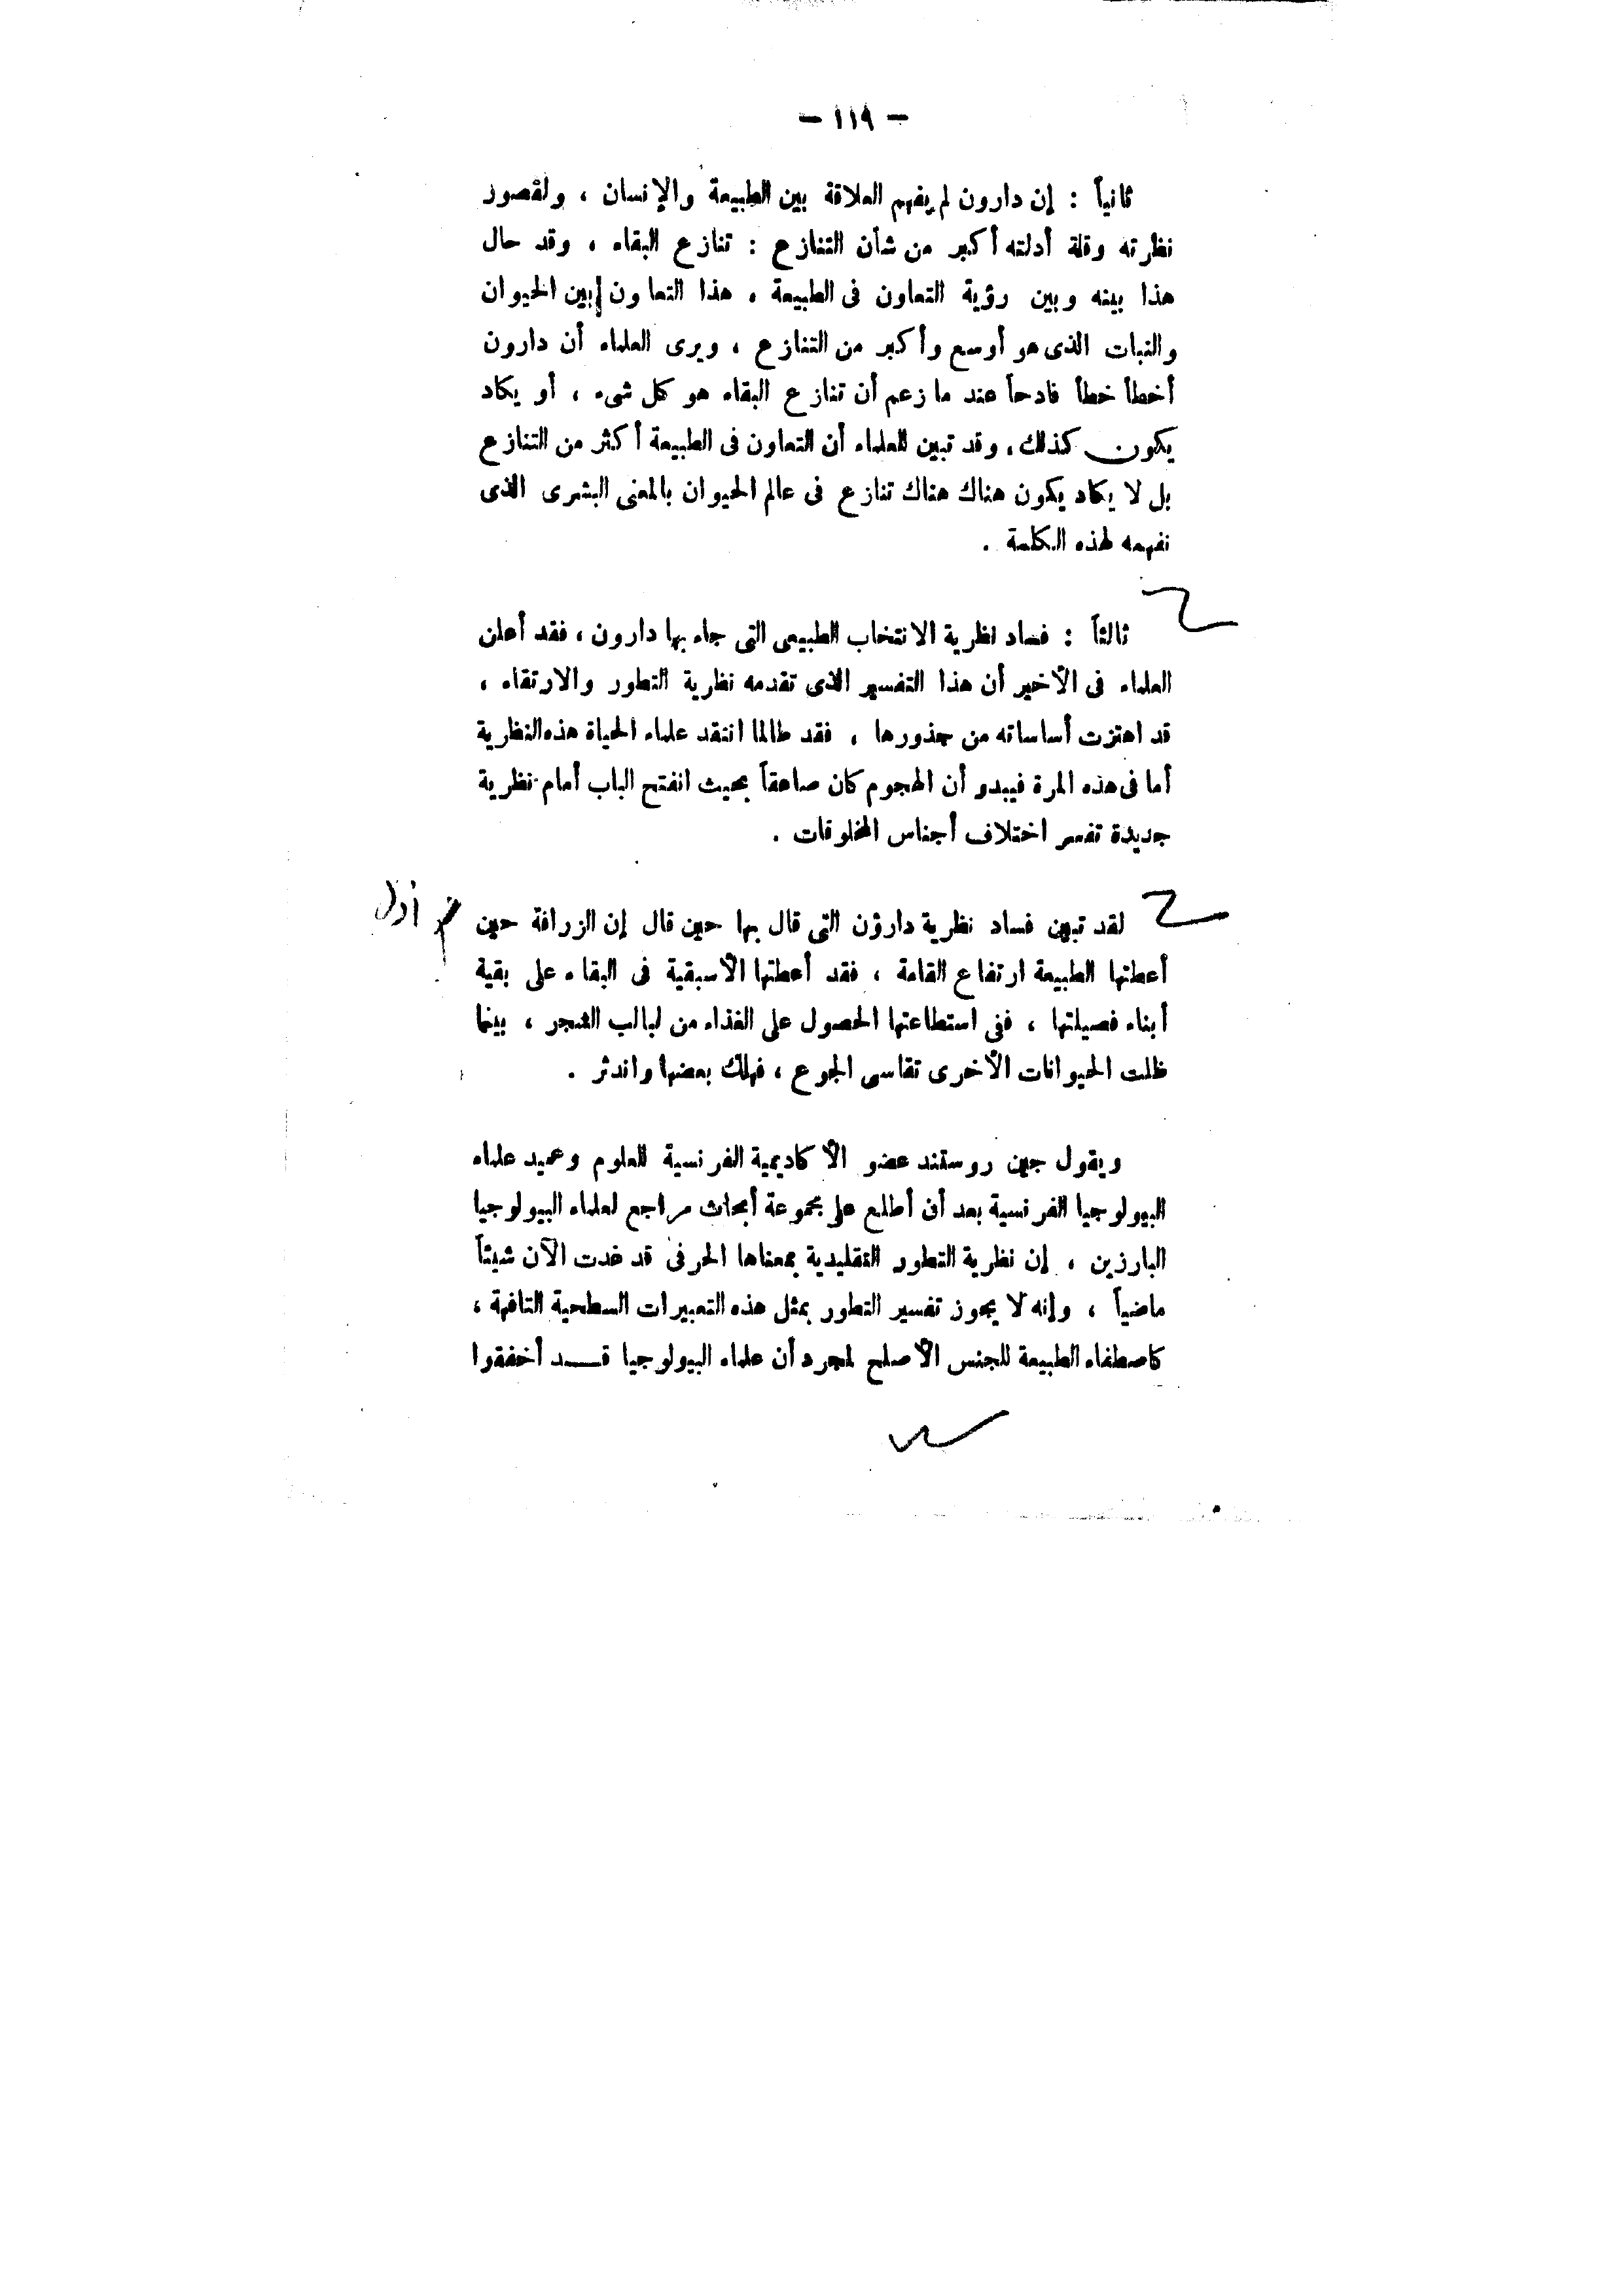 - ١١٩ -
ثانياً : إن دارون لم يفهم العلاقة بين الطبيعة والإنسان ، ولقصور
نظرته وقلة أدلته أكبر من شأن التنازع : تنازع البقاء ، وقد حال
هذا بينه وبين رؤية التعاون فى الطبيعة ، هذا التعاون بين الحيوان
والنبات الذى هو أوسع وأكبر من التنازع ، ويرى العلماء أن دارون
أخطأ خطأ فادحاً عند ما زعم أن تنازع البقاء هو كل شىء ، أو يكاد
يكون كذلك ، وقد تبين للعلماء أن التعاون فى الطبيعة أكثر من التنازع
بل لا يكاد يكون هناك هناك تنازع فى عالم الحيوان بالمعنى البشرى الذى
نفهمه لهذه الكلمة .
ثالثاً : فساد نظرية الانتخاب الطبيعى التى جاء بها دارون ، فقد أعلن
العلماء فى الأخير أن هذا التفسير الذى تقدمه نظرية التطور والارتقاء ،
قد اهتزت أساساته من جذورها ، فقد طالما انتقد علماء الحياة هذه النظرية
أما فى هذه المرة فيبدو أن الهجوم كان صاعقاً بحيث انفتح الباب أمام نظرية
جديدة تفسر اختلاف أجناس المخلوقات .
لقد تبين فساد نظرية دارون التى قال بها حين قال إن الزرافة حين
أعطتها الطبيعة ارتفاع القامة ، فقد أعطتها الأسبقية فى البقاء على بقية
أبناء فصيلتها ، ففى استطاعتها الحصول على الغذاء من لبالب الشجر ، بينما
ظلت الحيوانات الأخرى تقاسى الجوع ، فهلك بعضها واندثر .
ويقول جين روستند عضو الأكاديمية الفرنسية للعلوم وعميد علماء
البيولوجيا الفرنسية بعد أن أطلع على مجموعة أبحاث مراجع لعلماء البيولوجيا
البارزين ، إن نظرية التطور التقليدية بمعناها الحرفى قد غدت الآن شيئاً
ماضياً ، وإنه لا يجوز تفسير التطور بمثل هذه التعبيرات السطحية التافهة ،
كاصطفاء الطبيعة للجنس الأصلح لمجرد أن علماء البيولوجيا قـــد أخفقوا